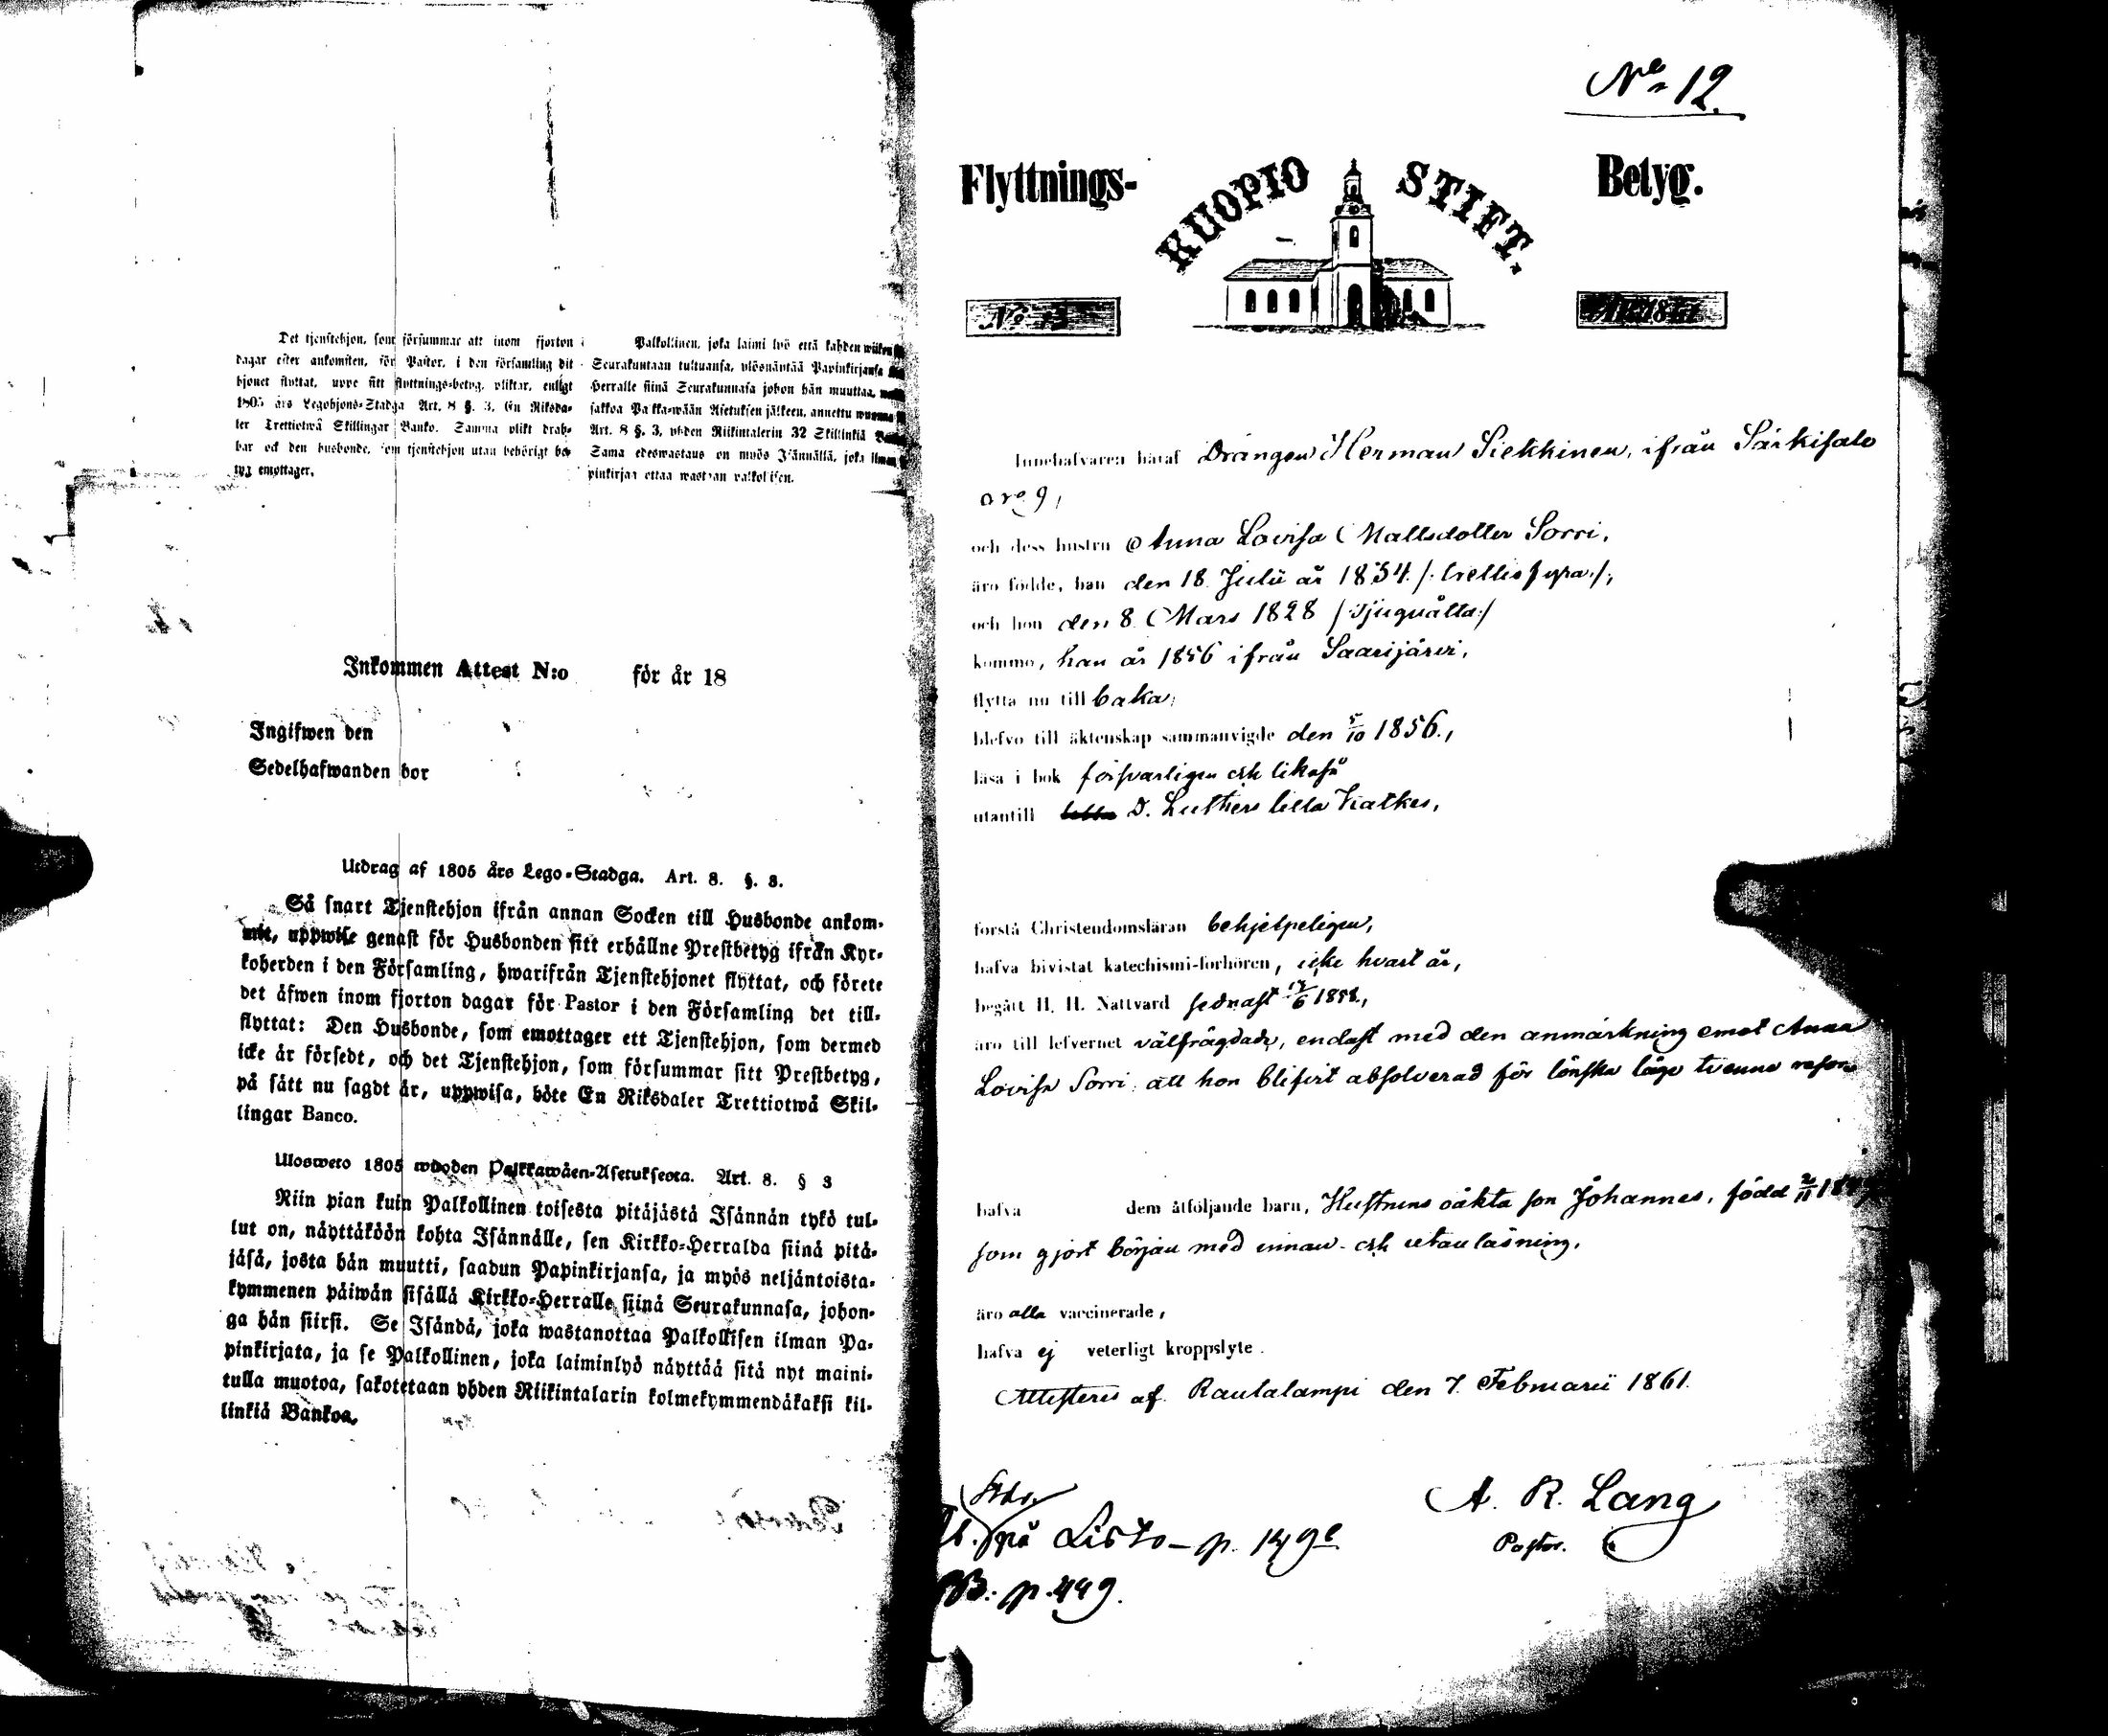 Det tjenstehjon, som försummar att inom fjorton
dagar efter ankomsten, för Pastor, i den församling dit
hjonet flyttat, uppe sitt flyttnings-betyg, pliktar, enligt
1805 års Legohjons-Stadga Art. 8 §. 3, En Riksda-
ler Trettiotwå Skillingar Banko. Samma plikt drab-
bar ock den husbonde, som tjenstehjon utan behörigt be-
tyg emottager.
Palkollinen, joka laimi lyö että kahden wiikon
Seurakuntaan tultuansa, ylösnäyttää Papinkirjansa
Herralle siinä Seurakunnasa johon hän muuttaa,
sakkoa Palkka-wään Asetuksen jälkeen, annettu wuonna
Art. 8 §. 3, yhden Riikintalerin 32 Skillinkiä
Sama edeswastaus on myös Isännällä, joka ilman
pinkirjaa ottaa wastaan palkollisen.
Inkommen Attest N:o för år 18
Ingifwen den
Sedelhafwanden bor
Utdrag af 1805 års Lego-Stadga. Art. 8. §. 3.
Så snart Tjenstehjon ifrån annan Socken till Husbonde ankom-
mit, uppwise genast för Husbonden sitt erhållne Prestbetyg ifrån Kyr-
koherden i den Församling, hwarifrån Tjenstehjonet flyttat, och förete
det äfwen inom fjorton dagar för Pastor i den Församling det till-
flyttat: Den Husbonde, som emottager ett Tjenstehjon, som dermed
icke är försedt, och det Tjenstehjon, som försummar sitt Prestbetyg,
på sätt nu sagdt är, uppwisa, böte En Riksdaler Trettiotwå Skil-
lingar Banco.
Ulosweto 1805 wuoden Palkkawäen-Asetuksesta. Art. 8. § 3
Niin pian kuin Palkollinen toisesta pitäjästä Isännän tykö tul-
lut on, näyttäköön kohta Isännälle, sen Kirkko-Herralda siinä pitä-
jäsä, josta hän muutti, saadun Papinkirjansa, ja myös neljäntoista-
kymmenen päiwän sisällä Kirkko-Herralle siinä Seurakunnasa, johon-
ga hän siirsi. Se Isändä, joka wastanottaa Palkollisen ilman Pa-
pinkirjata, ja se Palkollinen, joka laiminlyö näyttää sitä nyt maini-
tulla muotoa, sakotetaan yhden Riikintalarin kolmekymmendäkaksi kil-
linkiä Bankoa.
No 12.
Flyttnings- KUOPIO STIFT. Betyg.
No
Innehafvaren häraf Drängen Herman Siekkinen, ifrån Särkisalo
No 9,
och dess hustru Anna Lovisa Mattsdotter Sorri,
äro födde, han den 18 Julii år 1834 /: trettiofyra :/,
och hon den 8 Mars 1828 /: tjuguåtta :/
kommo, han år 1856 ifrån Saarijärvi,
flytta nu till baka,
blefvo till äktenskap sammanvigde den 5/10 1856.,
läsa i bok försvarligen och likaså
utantill D. Luthers lilla Katkes,
förstå Christendomsläran behjelpeligen,
hafva bivistat katechismi-förhören, icke hvart år,
begått H. H. Nattvard sednast 1858.,
äro till lefvernet välfrägdade, endast med den anmärkning emot Anna
Lovisa Sorri, att hon blifvit absolverad för lönska läge tvenne resor.
hafva dem åtföljande barn, Hustruns oäkta son Johannes, född
som gjort början med innan- och utanläsning.
äro alla vaccinerade,
hafva ej veterligt kroppslyte.
Attesteras af. Rautalampi den 7. Februarii 1861.
A. R. Lang
Pastor.
på p. 149
p. 449.